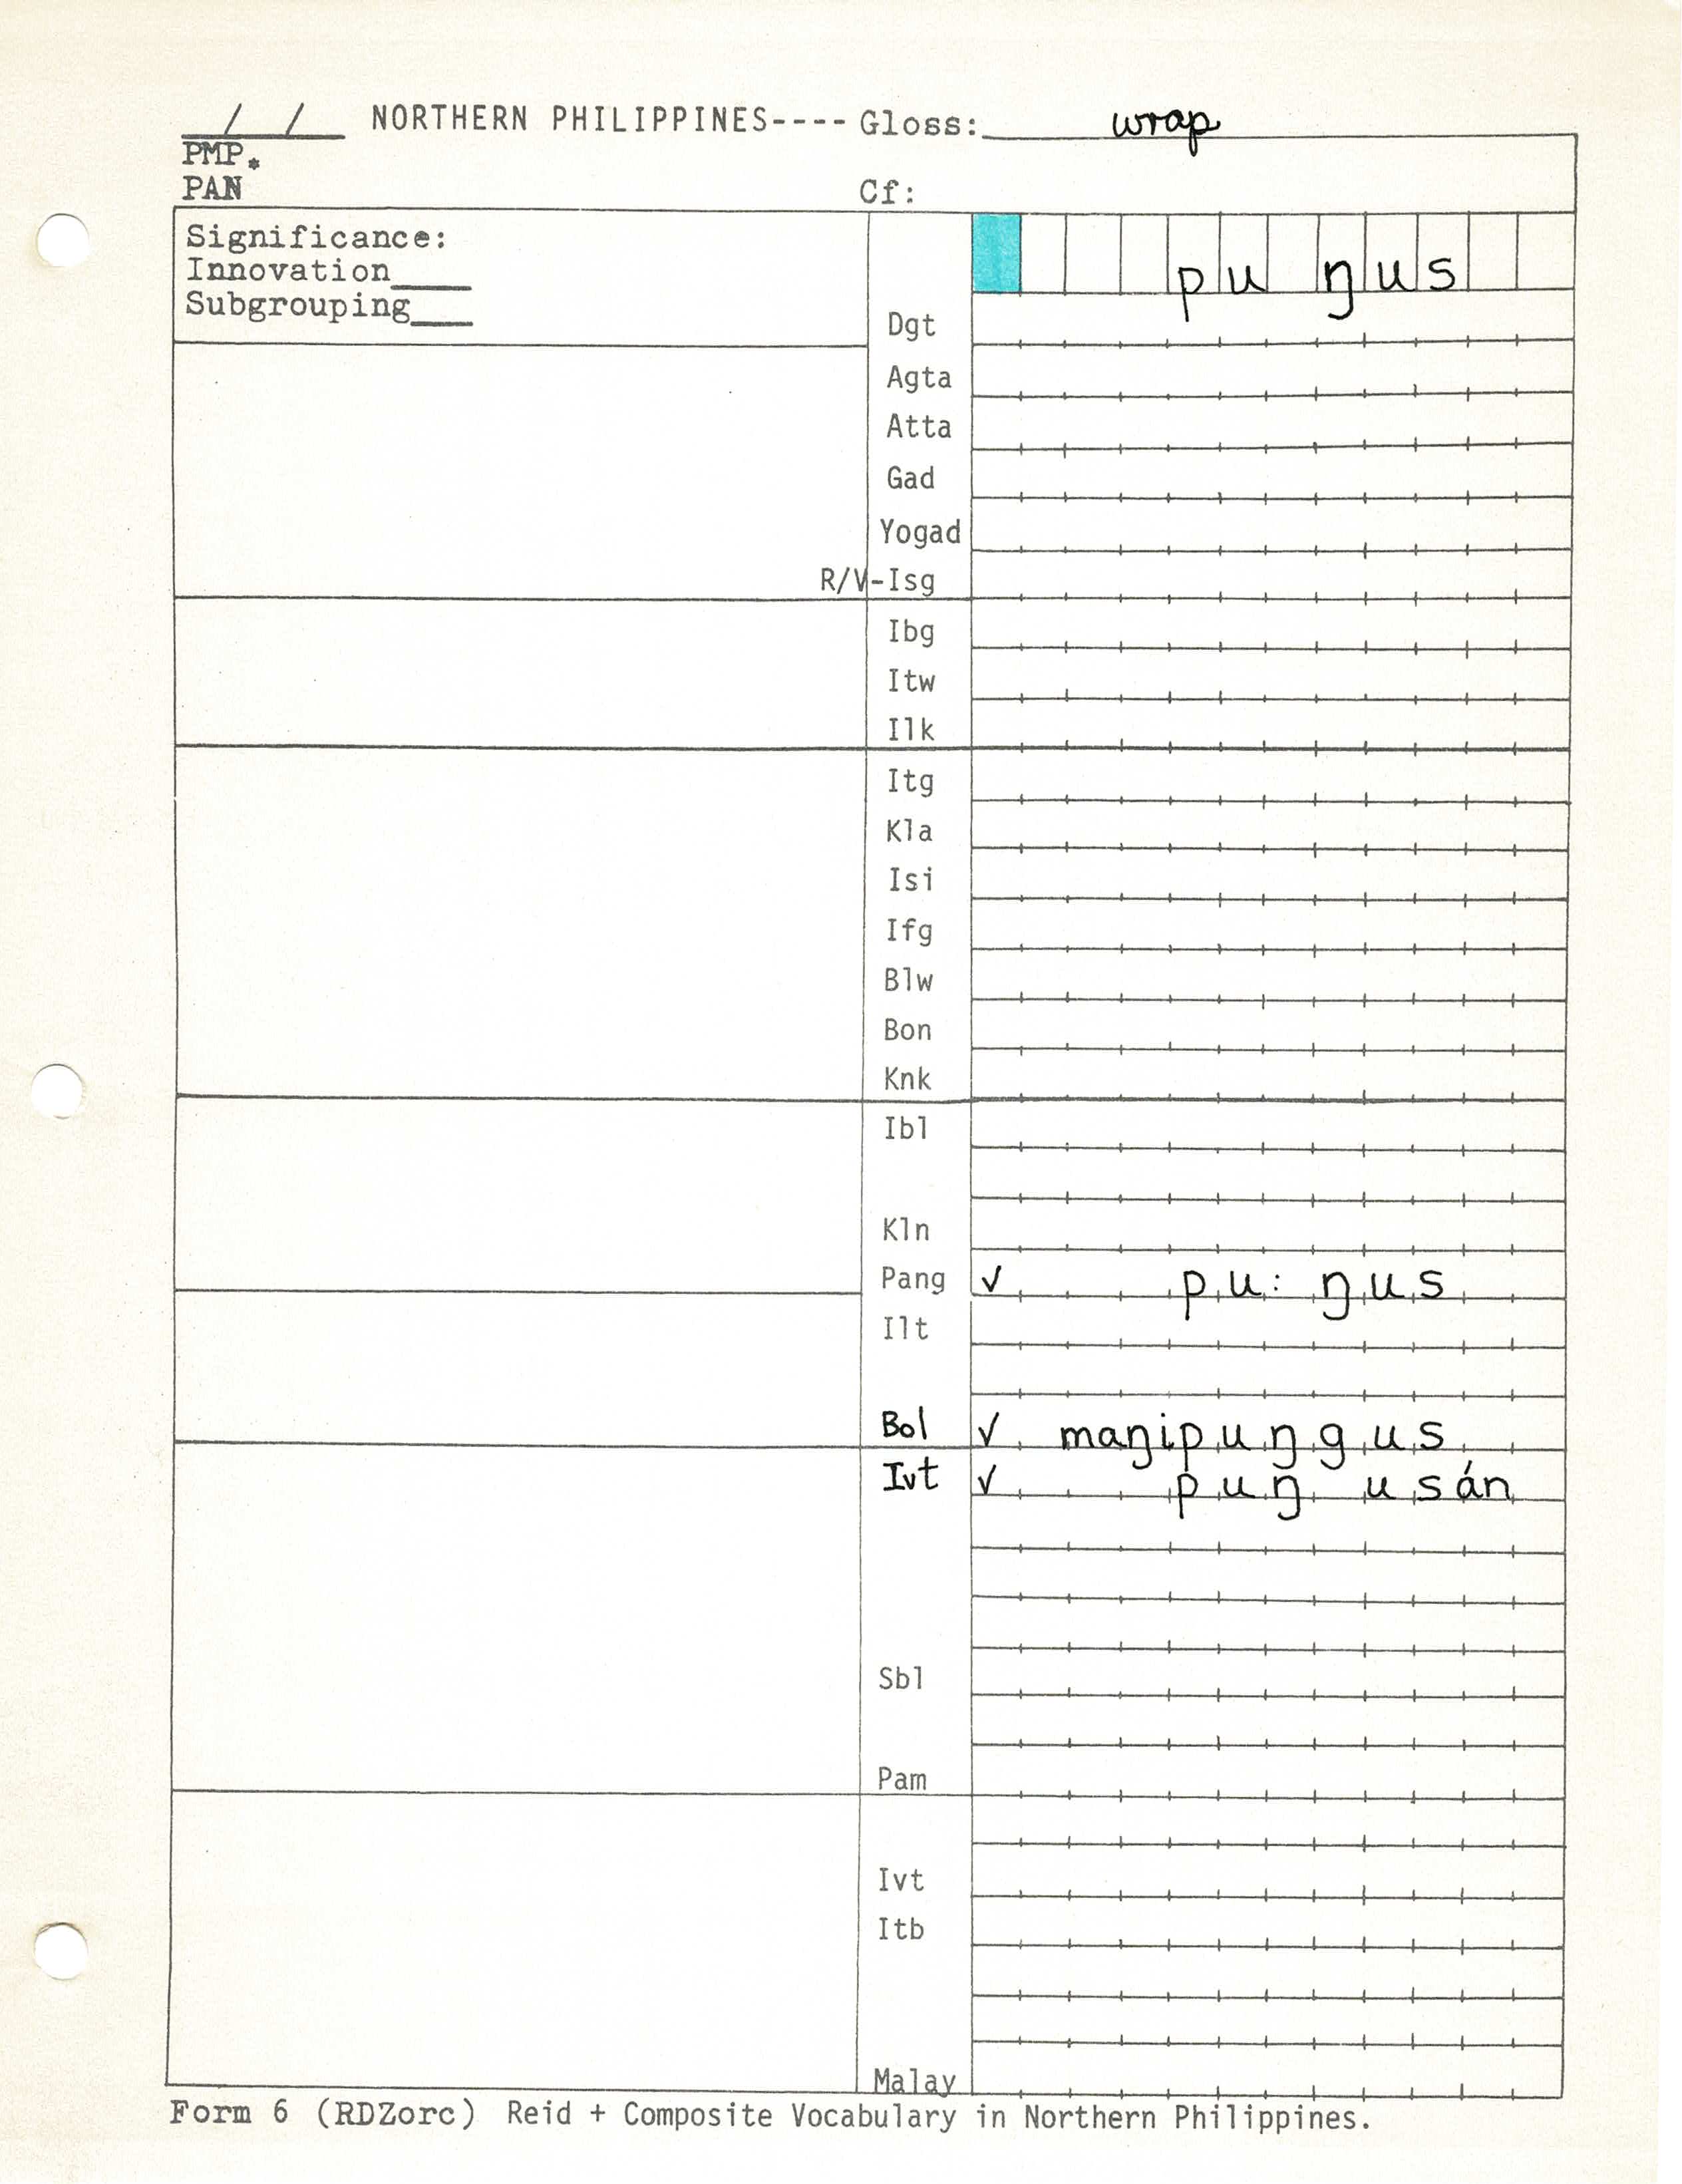 / / NORTHERN PHILIPPINES---- Gloss: wrap
PMP*
PAN Cf:
Significance:
Innovation
Subgrouping
pu ŋus
Dgt
Agta
Atta
Gad
Yogad
R/V-Isg
Ibg
Itw
Ilk
Itg
Kla
Isi
Ifg
Blw
Bon
Knk
Ibl
Kln
Pang ✓ pu: ŋus
Ilt
Bol ✓ maŋipuŋgus
Ivt ✓ puŋ usán
Sbl
Pam
Ivt
Itb
Malay
Form 6 (RDZorc) Reid + Composite Vocabulary in Northern Philippines.